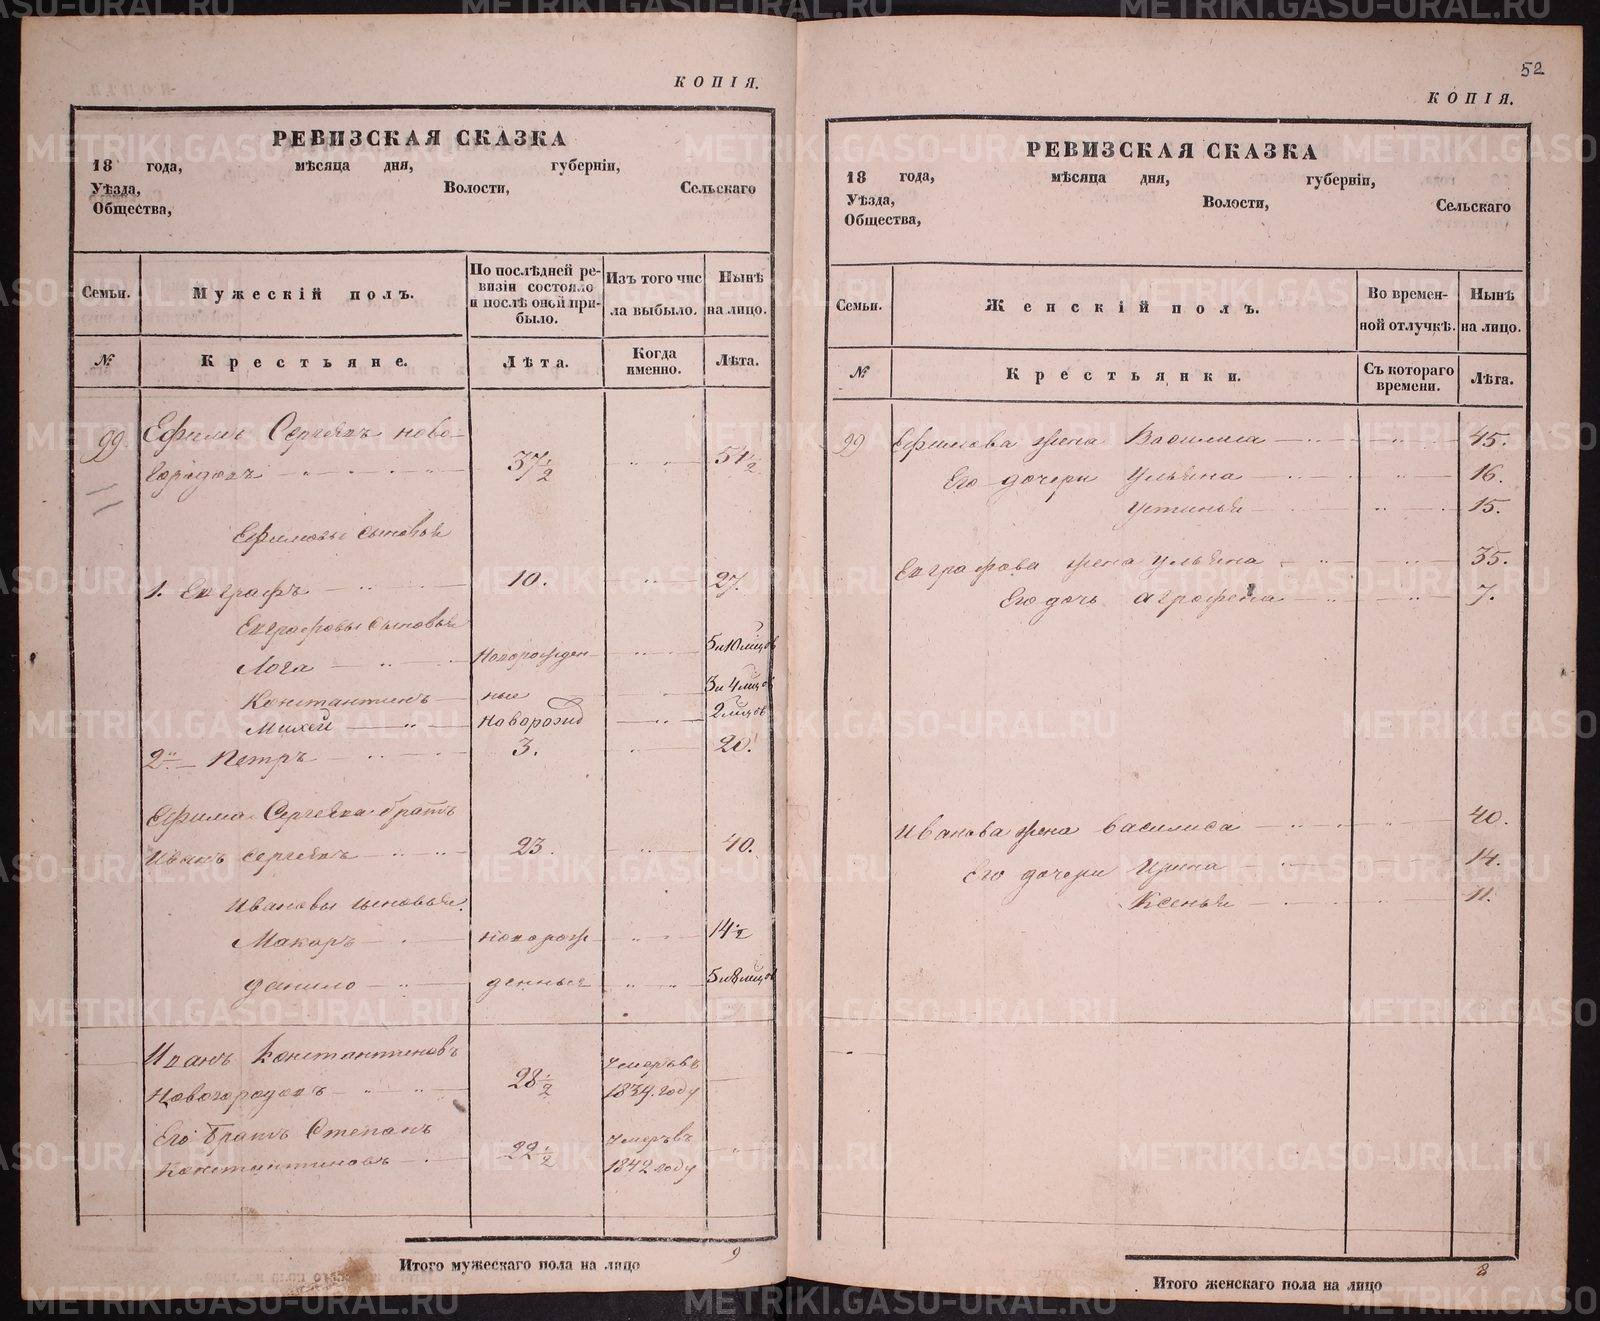 КОПІЯ.
РЕВИЗСКАЯ СКАЗКА
18 года, мѣсяца дня, губерніи,
Уѣзда, Волости, Сельскаго
Общества,
Семьи. Мужескій полъ. По послѣдней ревизіи состояло и послѣ оной прибыло. Изъ того числа выбыло. Нынѣ на лицо.
№ Крестьяне. Лѣта. Когда именно. Лѣта.
99. Ефимъ Сергѣевъ Ново-
городовъ 37 1/2 51 1/2
Ефимовы сыновья
1. Евграфъ 10. 27.
Евграфовы сыновья
Лога Новорожден- 5 и 10 мцов
Константинъ ные 3 и 4 мцов
Михей Новорожд 2 мцов
2й Петръ 3. 20.
Ефима Сергѣева братъ
Иванъ Сергѣевъ 23. 40.
Ивановы сыновья.
Макаръ новорож 14 1/2
Данило денные 5 и 8 мцов
Иванъ Константиновъ Умеръ въ
Новогородовъ 28 1/2 1839. году
Его братъ Степанъ Умеръ въ
Константиновъ 22 1/2 1842 году
Итого мужескаго пола на лицо 9
52
КОПІЯ.
РЕВИЗСКАЯ СКАЗКА
18 года, мѣсяца дня, губерніи,
Уѣзда, Волости, Сельскаго
Общества,
Семьи. Женскій полъ. Во временной отлучкѣ. Нынѣ на лицо.
№ Крестьянки. Съ котораго времени. Лѣта.
99 Ефимова жена Василиса 45.
Его дочери Ульяна 16.
Устинья 15.
Евграфова жена Ульяна 35.
Его дочь Агрофена 7.
Иванова жена Василиса 40.
Его дочери Ирина 14.
Ксенья 11.
Итого женскаго пола на лицо 8
METRIKI.GASO-URAL.RU